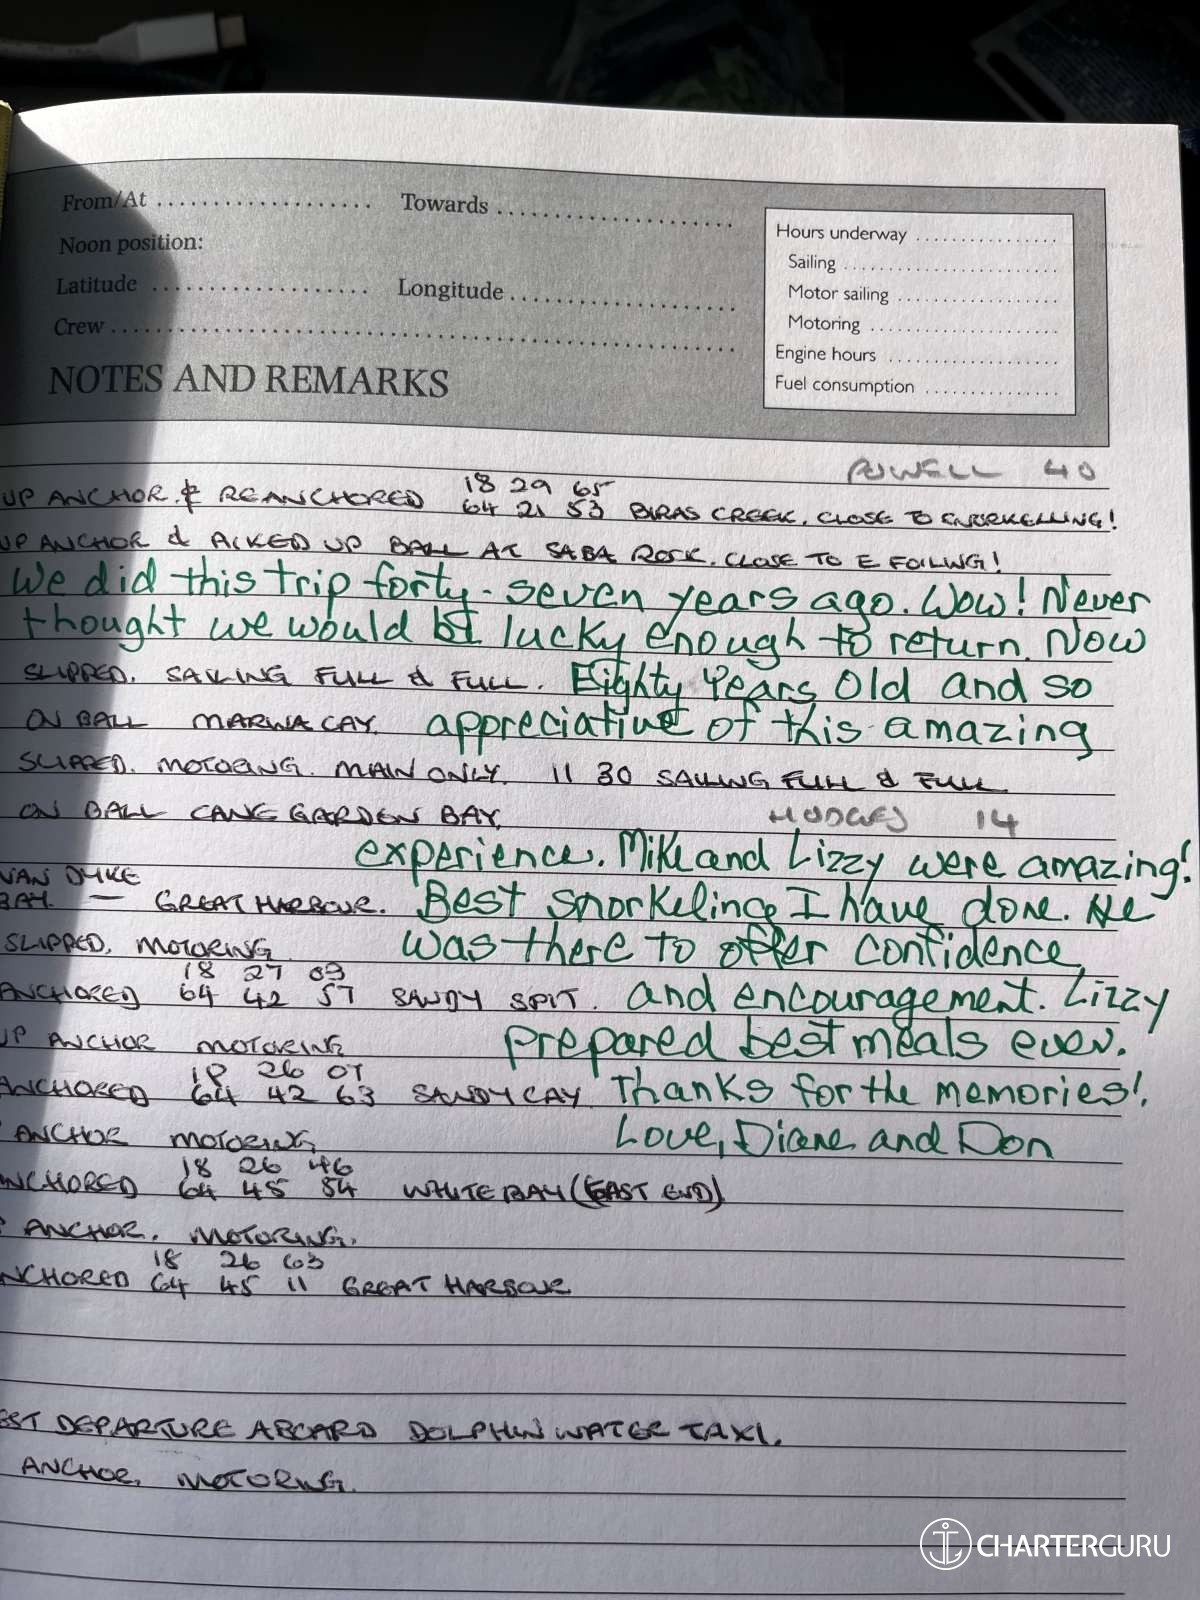 From/At
Towards
Noon position:
Latitude
Longitude
Crew
NOTES AND REMARKS
Hours underway
Sailing
Motor sailing
Motoring
Engine hours
Fuel consumption
POWELL 40
18 29 65
UP ANCHOR & REANCHORED 64 21 53 BIRAS CREEK. CLOSE TO SNORKELLING!
UP ANCHOR & PICKED UP BALL AT SABA ROCK. CLOSE TO E FOILING!
We did this trip forty-seven years ago. Wow! Never
thought we would be lucky enough to return. Now
SLIPPED. SAILING FULL & FULL. Eighty Years Old and so
ON BALL MARINA CAY. appreciative of this amazing
SLIPPED. MOTORING. MAIN ONLY. 11 30 SAILING FULL & FULL
ON BALL CANE GARDEN BAY.
HODGES 14
experience. Mike and Lizzy were amazing!
VAN DYKE
BAY. — GREAT HARBOUR. Best snorkeling I have done. He
SLIPPED. MOTORING was there to offer confidence
18 27 03
ANCHORED 64 42 57 SANDY SPIT. and encouragement. Lizzy
UP ANCHOR MOTORING prepared best meals ever.
18 26 07
ANCHORED 64 42 63 SANDY CAY Thanks for the memories!
ANCHOR MOTORING Love, Diane and Don
18 26 46
NCHORED 64 45 54 WHITE BAY (EAST END)
ANCHOR. MOTORING.
18 26 63
NCHORED 64 45 11 GREAT HARBOUR
EST DEPARTURE ABOARD DOLPHIN WATER TAXI.
ANCHOR. MOTORING.
CHARTERGURU